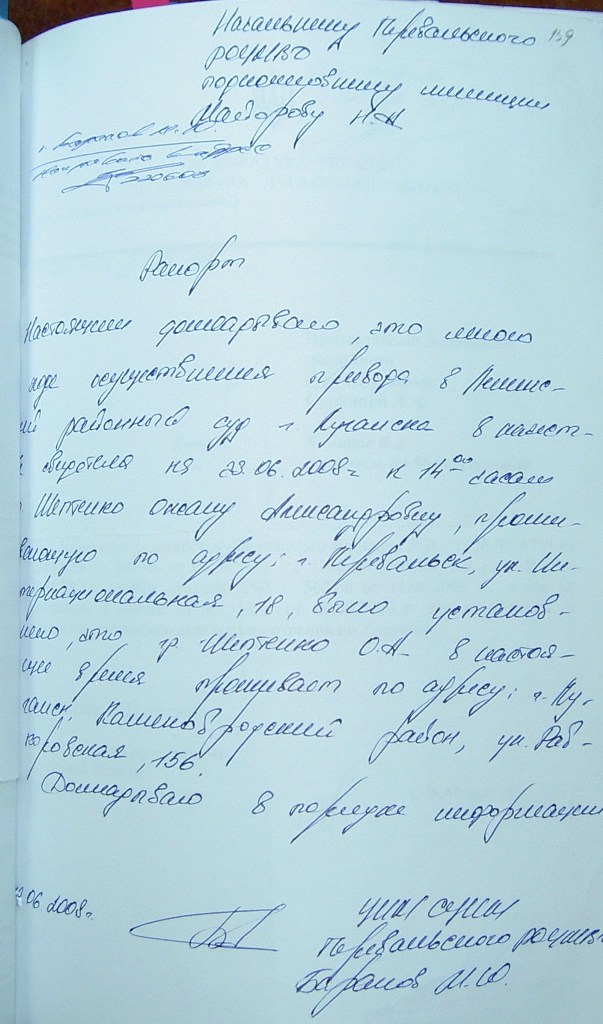 Начальнику Перевальского 159
РОУМВО
подполковнику милиции
Майборову Н.А
Рапорт
Настоящим докладываю, что мною
ходе осуществления привода в Ленинс-
ий районный суд г. Луганска в качест-
свидетеля на 23.06.2008г к 14 00 часам
Шептенко Оксану Александровну, прожи-
вающую по адресу: г. Перевальск, ул. Ин-
тернациональная, 18, было установ-
лено, что гр Шептенко О.А в настоя-
щее время проживает по адресу: г. Лу-
ганск, Каменобродский район, ул.
, 156.
Докладываю в порядке информации
06 2008г.
УИМ СГИМ
Перевальского РОУМВО
Баранов И.Ю.